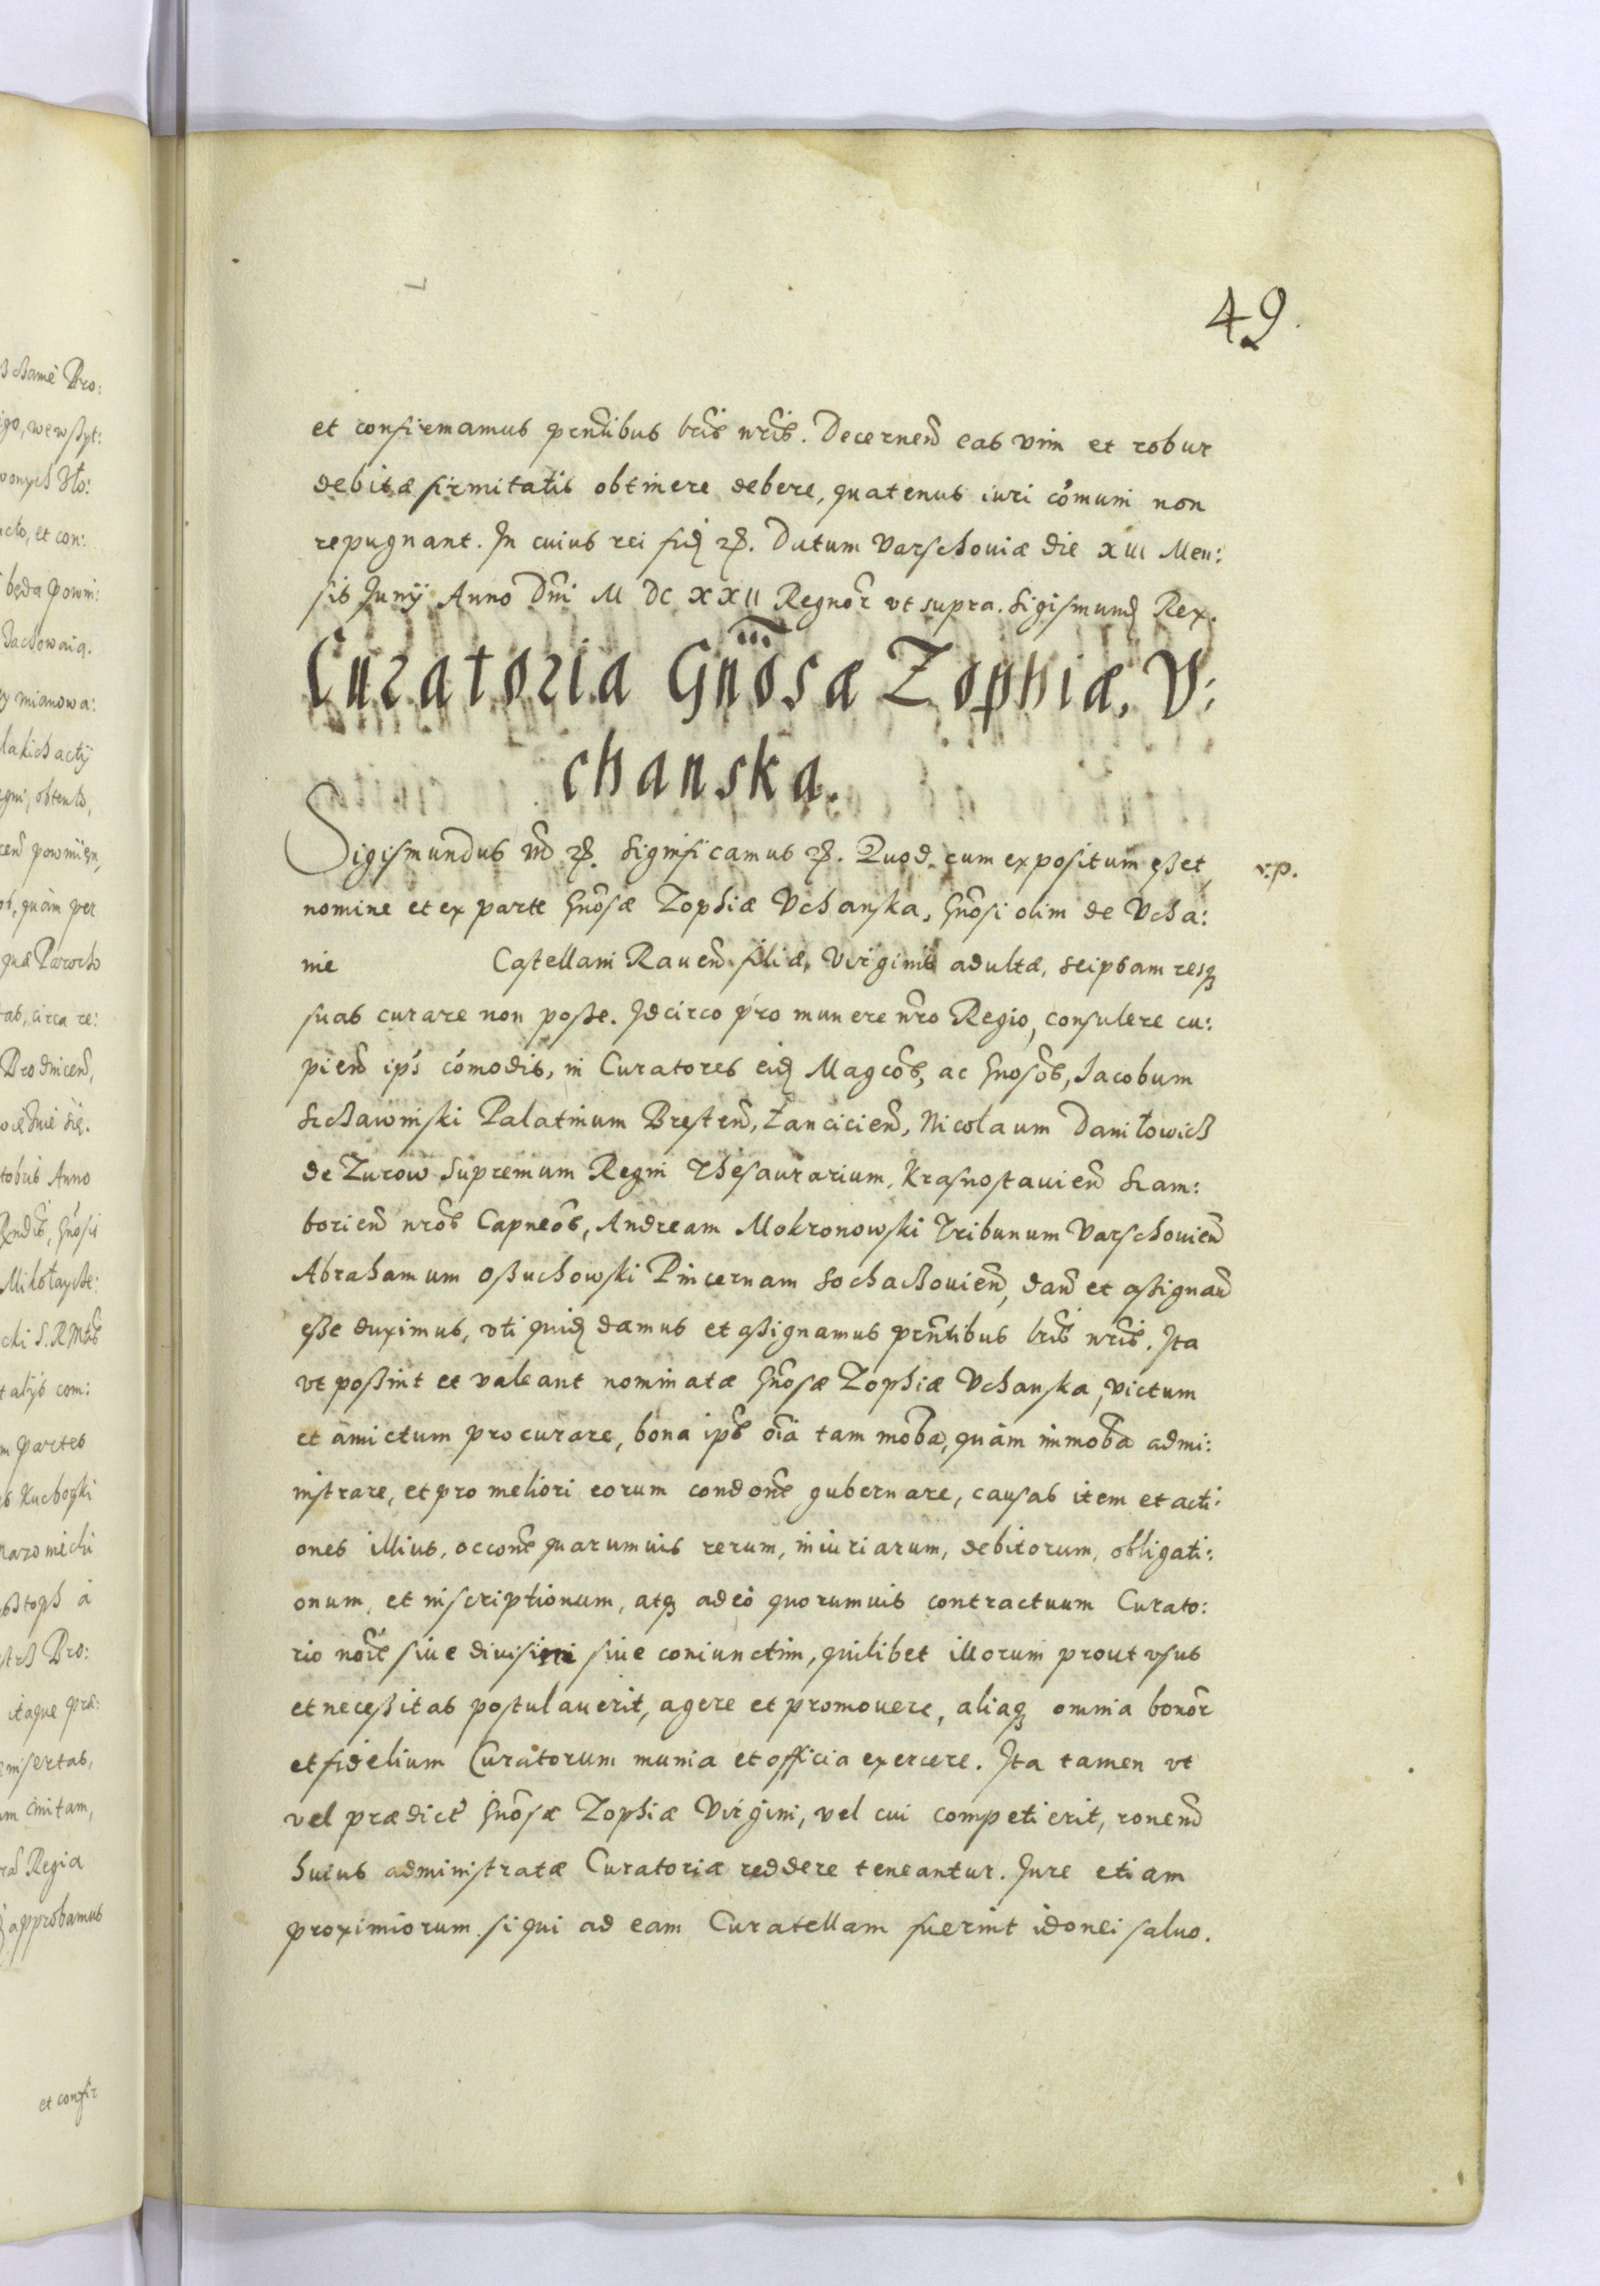 49.
et confirmamus prntibus lris nris. Decernen eas vim et robur
debitæ firmitatis obtinere debere, quatenus iuri cõmuni non
repugnant. In cuius rei fid etc. Datum Varschouiæ die XIII Men:
sis Junij Anno Dni M DC XXII Regnor vt supra. Sigismund Rex.
Curatoria Gnosæ Zophiæ, V:
chanska.
Sigismundus III etc. Significamus etc. Quod cum expositum esset v.p.
nomine et ex parte Gnosæ Zophiæ Vchanska, Gnosi olim de Vcha:
nie Castellani Rauen filiæ, Virginis adultæ, seipsam resq
suas curare non posse. Idcirco pro munere nro Regio, consulere cu:
pien ips cõmodis, in Curatores eid Magcos, ac Gnosos, Jacobum
Sczawinski Palatinum Bresten, Łancicien, Nicolaum Daniłowicz
de Zurow Supremum Regni Thesaurarium, Krasnostauien Sam:
borien nros Capneos, Andream Mokronowski Tribunum Varschouien
Abrahamum Oßuchowski Pincernam Sochaczouien, dan et assignan
esse duximus, vti quid damus et assignamus prntibus lris nris. Ita
vt possint et valeant nominatæ Gnosæ Zophiæ Vchanska, victum
et amictum procurare, bona ips oia tam moba, quàm immoba admi:
nistrare, et pro meliori eorum condone gubernare, causas item et acti:
ones illius, occone quarumuis rerum, iniuriarum, debitorum, obligati:
onum, et inscriptionum, atq adeò quorumuis contractuum Curato:
rio noie siue diuisim siue coniunctim, quilibet illorum prout vsus
et necessitas postulauerit, agere et promouere, aliaq omnia bonor
et fidelium Curatorum munia et officia exercere. Ita tamen vt
vel prædict Gnosæ Zophiæ Virgini, vel cui competierit, ronem
huius administratæ Curatoriæ reddere teneantur. Jure etiam
proximiorum si qui ad eam Curatellam fuerint idonei saluo.